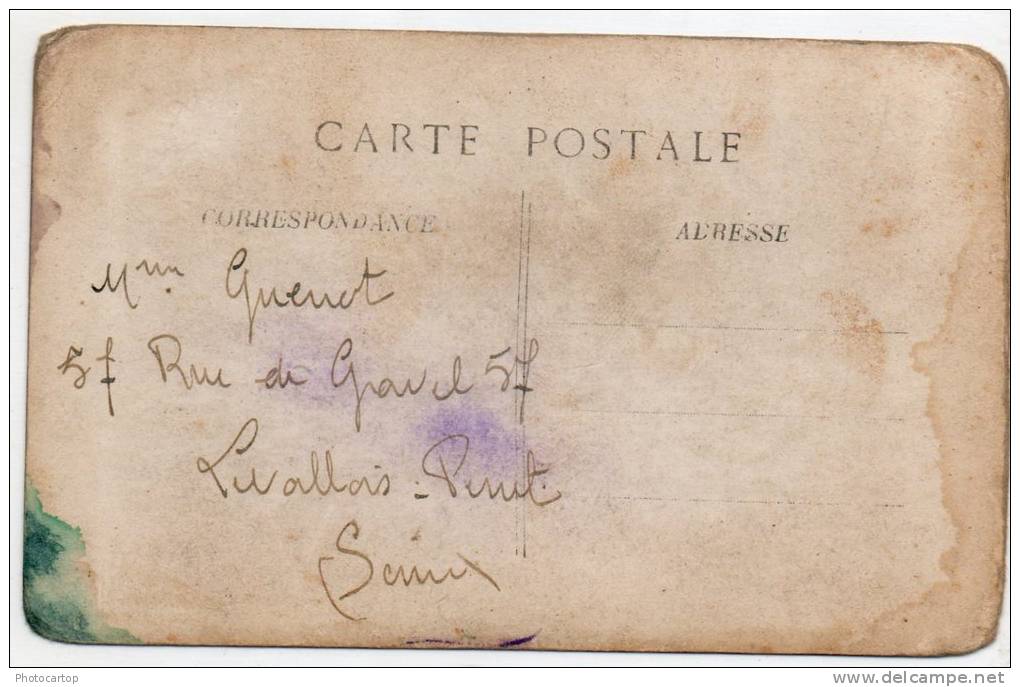 CARTE POSTALE
CORRESPONDANCE
ADRESSE
Mme Guenot
57 Rue de Gravel 57
Levallois-Perret
Seine
Photocartop
www.delcampe.net